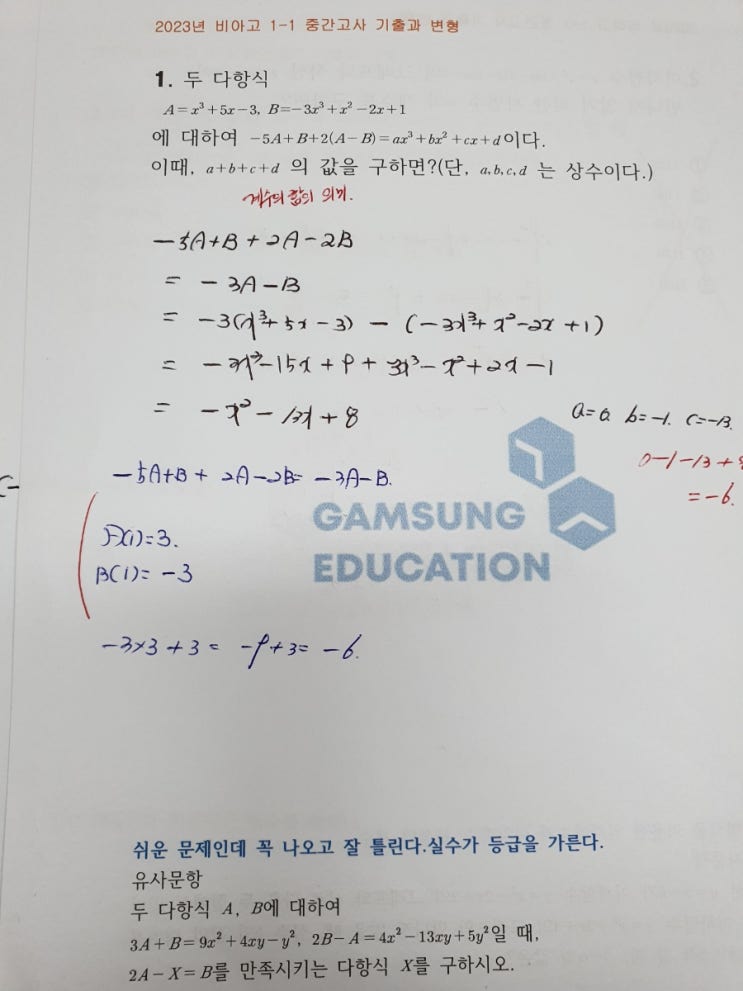 2023년 비아고 1-1 중간고사 기출과 변형
1. 두 다항식
A=x³+5x-3, B=-3x³+x²-2x+1
에 대하여 -5A+B+2(A-B)=ax³+bx²+cx+d이다.
이때, a+b+c+d 의 값을 구하면?(단, a,b,c,d 는 상수이다.)
계수의 합의 의미.
-5A+B+2A-2B
= -3A-B
= -3(x³+5x-3) - (-3x³+x²-2x+1)
= -3x³-15x+9+3x³-x²+2x-1
= -x²-13x+8
a=0. b=-1. c=-13.
0-1-13+8
=-6.
-5A+B+2A-2B= -3A-B.
A(1)=3.
B(1)=-3
-3×3+3= -9+3= -6.
GAMSUNG
EDUCATION
쉬운 문제인데 꼭 나오고 잘 틀린다.실수가 등급을 가른다.
유사문항
두 다항식 A, B에 대하여
3A+B=9x²+4xy-y², 2B-A=4x²-13xy+5y²일 때,
2A-X=B를 만족시키는 다항식 X를 구하시오.